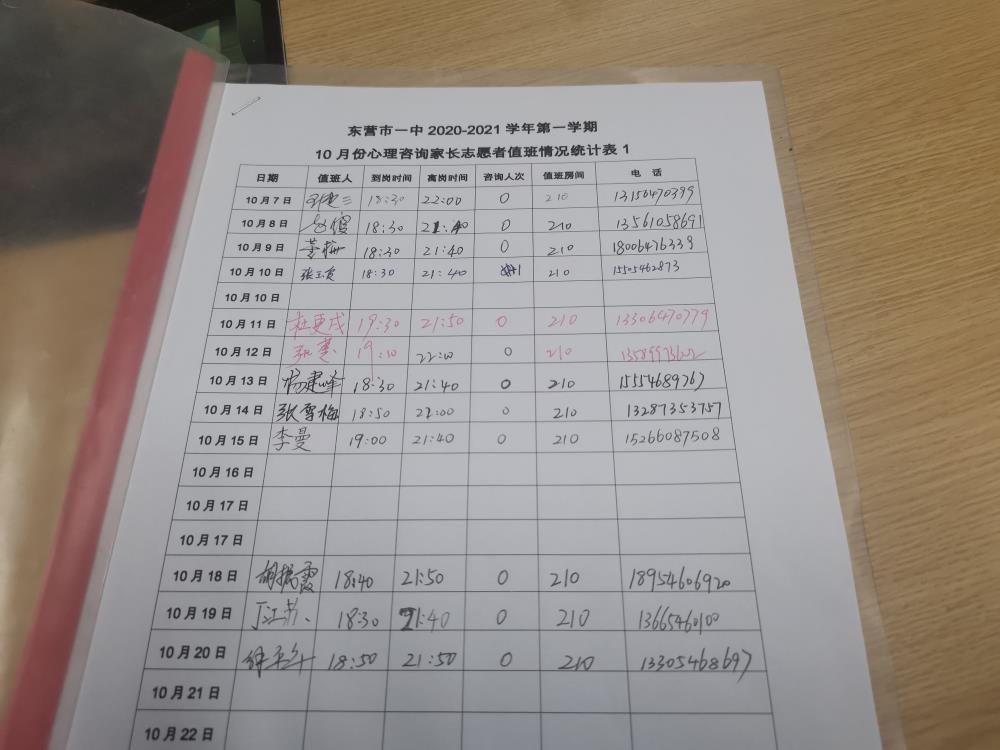 东营市一中 2020-2021 学年第一学期
10 月份心理咨询家长志愿者值班情况统计表 1
日期 值班人 到岗时间 离岗时间 咨询人次 值班房间 电 话
10 月 7 日 18:30 22:00 0 210 13156470399
10 月 8 日 18:30 21:40 0 210 13561058691
10 月 9 日 董梅 18:30 21:40 0 210 18006476339
10 月 10 日 18:30 21:40 210 15505462873
10 月 10 日
10 月 11 日 杜更成 19:30 21:50 0 210 13306470779
10 月 12 日 张惠 19:10 22:00 0 210
10 月 13 日 杨建峰 18:30 21:40 0 210 15554689767
10 月 14 日 张雪梅 18:50 22:00 0 210 13287353757
10 月 15 日 李曼 19:00 21:40 0 210 15266087508
10 月 16 日
10 月 17 日
10 月 17 日
10 月 18 日 胡瑞霞 18:40 21:50 0 210 18954606920
10 月 19 日 丁江苏 18:30 21:40 0 210 13665460100
10 月 20 日 18:50 21:50 0 210 13305468697
10 月 21 日
10 月 22 日